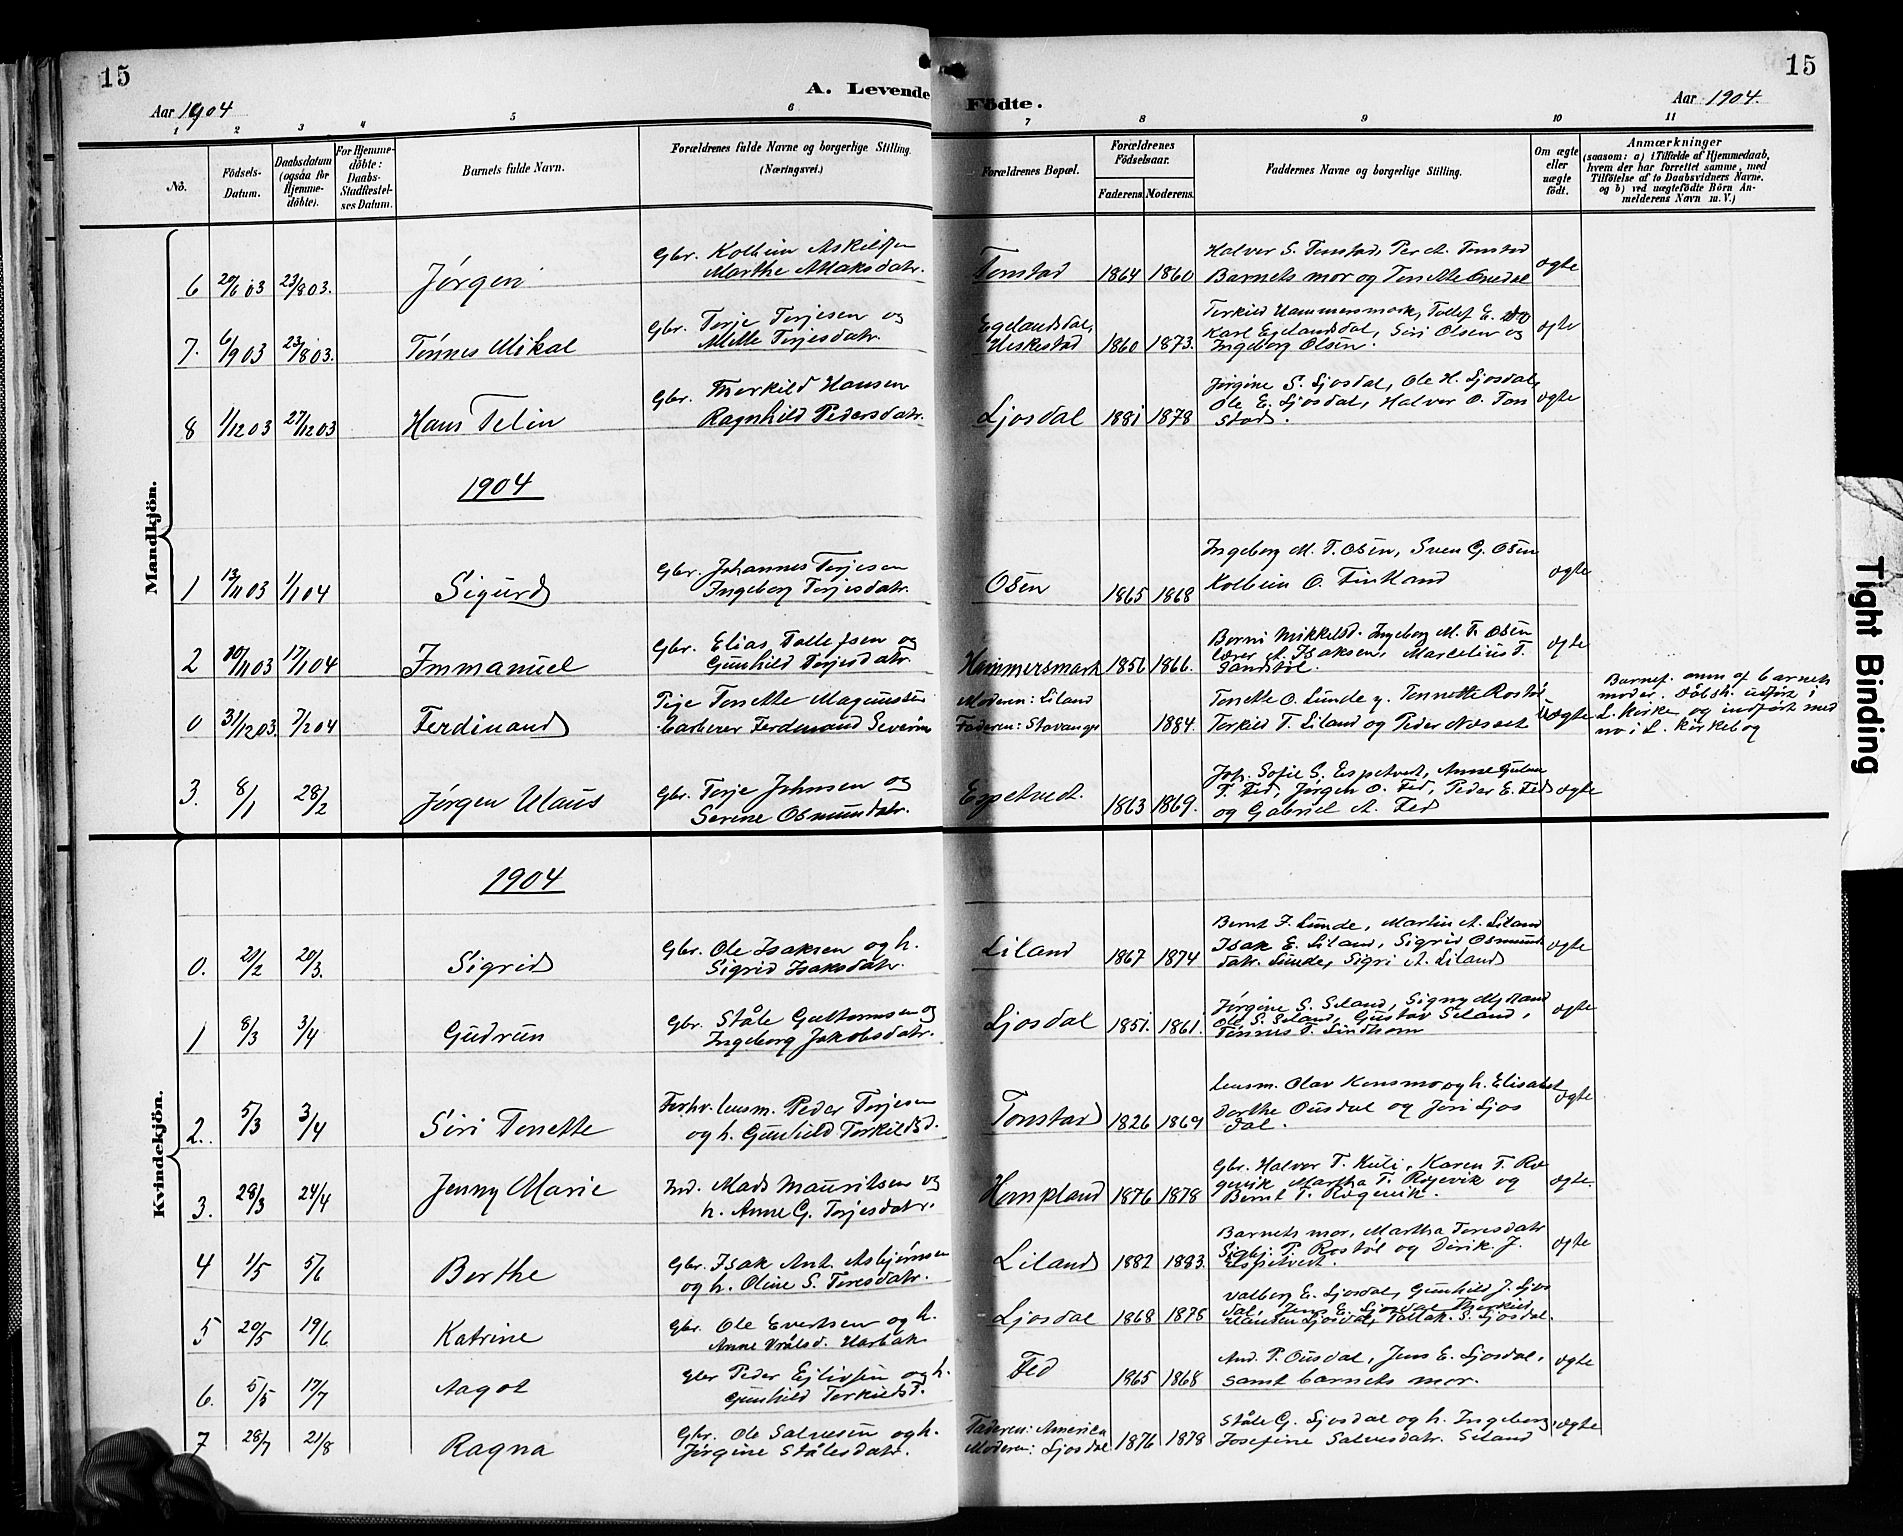 15
15
A. Levende Födte.
Aar 1904
Aar 1904.
1 2 3 4 5 6 7 8 9 10 11
No.
Födsels-Datum.
Daabsdatum (ogsaa for Hjemme-döbte).
For Hjemme-döbte: Daabs-Stadfæstel-ses Datum.
Barnets fulde Navn.
Forældrenes fulde Navne og borgerlige Stilling. (Næringsvei.)
Forældrenes Bopæl.
Forældrenes Födselsaar.
Faderens Moderens.
Faddernes Navne og borgerlige Stilling.
Om ægte eller uægte födt.
Anmærkninger
(saasom: a) i Tilfælde af Hjemmedaab, hvem der har forrettet samme, med Tilföielse af to Daabsvidners Navne, og b) ved uægtefödte Börn An-melderens Navn m. V.)
Mandkjön.
6 20/6 03 23/8 03. Jørgen Gbr. Kolbein Askildsen Marthe Maksdatr. Tonstad 1864 1860 Halver S. Tonstad, Per A. Tonstad Barnets mor og Tonette Ousdal ægte
7. 6/9 03 23/8 03. Tønnes Mikal Gbr. Terje Terjesen og Mette Terjesdatr. Egelandsdal, Heskestad 1860 1873. Terkild Hammersmark, Tollef E. do Karl Egelandsdal, Siri Olsen og Ingeborg Olsen. ægte
8 1/12 03 27/12 03 Hans Telin Gbr. Therkild Hansen Ragnhild Pedersdatr. Ljosdal 1881 1878 Jørgine S. Ljosdal, Ole H. Ljosdal, Ole E. Ljosdal, Halver O. Ton stad. ægte
1904
1 13/11 03 1/1 04 Sigurd Gbr. Johannes Terjesen Ingeborg Terjesdatr. Osen 1865 1868 Ingeborg M. T. Osen, Sven G. Osen Kolbein O. Finland ægte
2 10/11 03 17/1 04 Immanuel Gbr. Elias Tollefsen og Gunhild Terjesdatr. Hammersmark 1856 1866. Berni Mikkelsd. Ingeborg M. T. Osen Lærer A. Isaksen, Marcelius T. Sandstøl. ægte
0 31/12 03. 7/2 04 Ferdinand Pige Tonette Magnusdtr Barberer Ferdinand Severin Moderen: Liland Faderen: Stavanger 1884. Tonette O. Lunde g. Tonnette Rostøl Terkild T. Liland og Peder Næset Uægte Barnef. anm af barnets moder. Dåbsh. udført i L. kirke og indført med no i L. kirkebog
3. 8/1 28/2 Jørgen Klaus Gbr. Terje Johnsen og Serine Osmundatr. Espetvedt. 1863 1869. Joh. Sofie S. Espetvedt, Anne T. Fed, Jørgen O. Fed, Peder E. Fed og Gabriel A. Fed ægte
Kvindekjön.
1904
0. 21/2 20/3. Sigrid Gbr. Ole Isaksen og h. Sigrid Isaksdatr. Liland 1867 1874 Bernt F. Lunde, Martin A. Liland Isak E. Liland, Sigrid Osmunds datr. Lunde, Sigri A. Liland ægte
1 8/3 3/4 Gudrun Gbr. Ståle Guttormsen og Ingeborg Jakobsdatr. Ljosdal 1851. 1861. Jørgine S. Seland, Signy Mydland Ole S. Seland, Gustav Seland, Tønnes T. Lindhom ægte
2. 5/3 3/4 Siri Tonette Forhv. lensm. Peder Terjesen og h. Gunhild Terkildsd. Tonstad 1826 1864 Lensm. Olav Konsmo og h. Elisabet Dorthe Ousdal og Jori Ljos dal. ægte
3. 28/3 24/4 Jenny Marie Ind. Mads Mauritsen og h. Anne G. Terjesdatr. Hompland 1876 1878 Gbr. Halver T. Kuli, Karen T. Rø gevik Martha T. Røjevik og Bernt T. Røgevik. ægte.
4 1/5 5/6 Berthe Gbr. Isak Ant. Asbjørnsen og h. Oline S. Teresdatr. Liland 1882 1883. Barnets mor, Martha Teresdatr Sigbj. P. Rostøl og Dirik. J. Espetvedt. ægte
5 20/5 19/6 Katrine Gbr. Ole Evertsen og h. Anne Vrålsd. Harbak Ljosdal 1868 1875 Valborg E. Ljosdal, Gunhild J. Ljos dal, Jens E. Ljosdal Therkild Hansen Ljosdal, Tallak. S. Ljosdal.
6. 5/5 17/7 Aagot Gbr Peder Ejlivsen og h. Gunhild Terkildsd. Fed 1865 1868 And. P. Ousdal, Jens E. Ljosdal, samt barnets mor. ægte
7 28/7 21/8 Ragna Gbr. Ole Salvesen og h. Jørgine Ståldesdatr. Faderen: Amerika Moderen: Ljosdal 1876 1878 Ståle G. Ljosdal og h. Ingeborg, Josefine Salvesdatr. Seland ægte
Tight Binding